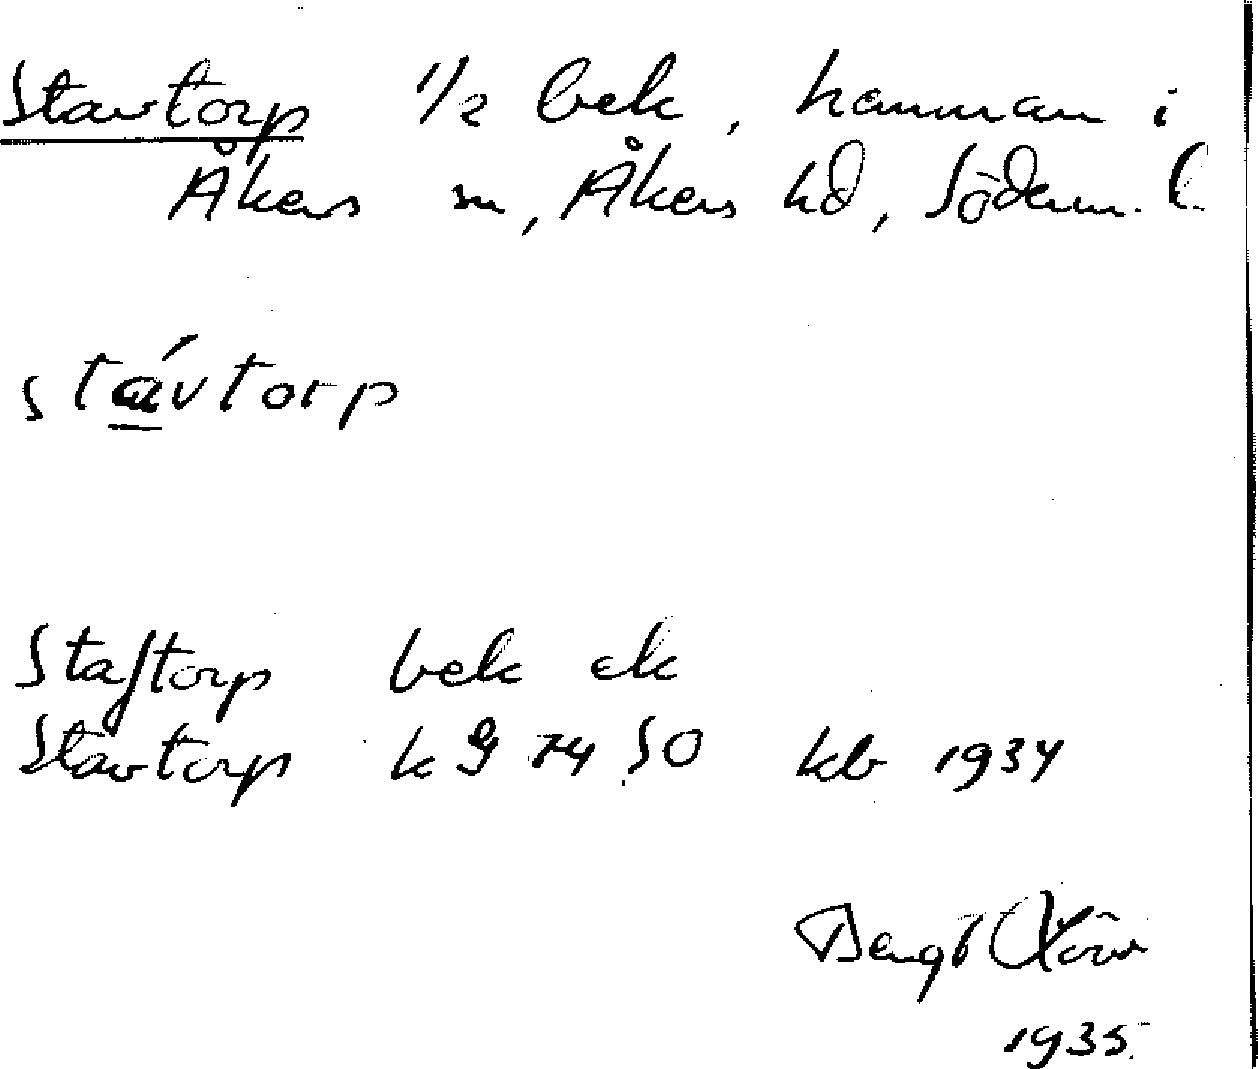 Stavtorp 1/2 bek, hamman i
Åkers sn, Åkers hd, Söderm. l.
stávtorp
Staftorp bek ek
Stavtorp k 9 74 SO kb 1934
Bengt
1935.